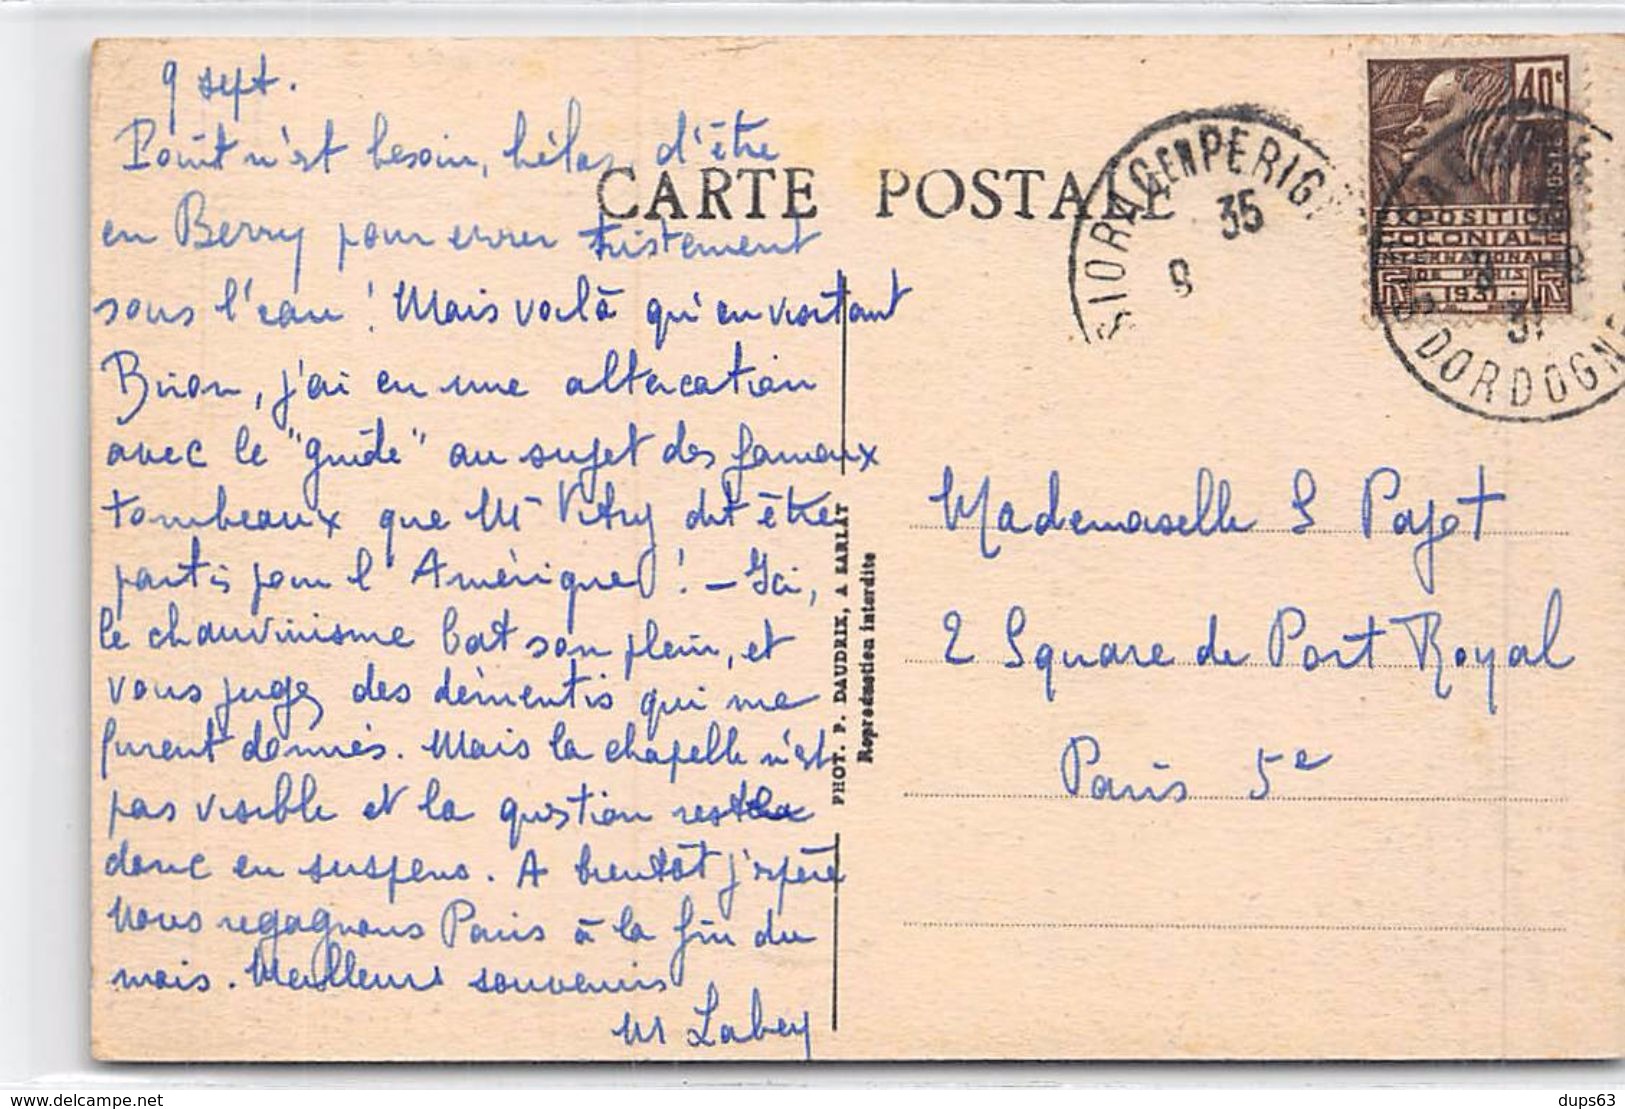 9 sept.
Point n'est besoin, hélas, d'être
en Berry pour errer tristement
sous l'eau ! Mais voilà qu'en visitant
Biron, j'ai eu une altercation
avec le "guide" au sujet des fameux
tombeaux que Mr Vitry dit être
partis pour l'Amérique ! — Ici,
le chauvinisme bat son plein, et
vous jugez des démentis qui me
furent donnés. Mais la chapelle n'est
pas visible et la question resta
donc en suspens. A bientôt j'espère
Nous regagnons Paris à la fin du
mois. Meilleurs souvenirs
M Labey
CARTE POSTALE
PHOT. P. DAUDRIX, A SARLAT
Reproduction interdite
SIORAC EN PERIG
35
9
40c
EXPOSITION
COLONIALE
INTERNATIONALE
DE PARIS
1931
9
31
DORDOGNE
Mademoiselle S Pajot
2 Square de Port Royal
Paris 5e
https://www.delcampe.net
dups63